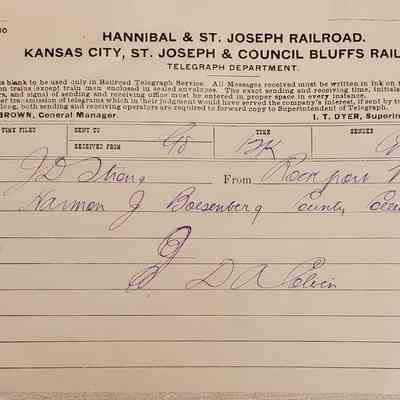 HANNIBAL & ST. JOSEPH RAILROAD.
KANSAS CITY, ST. JOSEPH & COUNCIL BLUFFS RAIL
TELEGRAPH DEPARTMENT.
is blank to be used only in Railroad Telegraph Service. All Messages received must be written in ink on t
on trains (except train men enclosed in sealed envelopes. The exact sending and receiving time, initials
rs, and signal of sending and receiving office must be entered in proper space in every instance.
er transmission of telegrams which in their judgment would have served the company's interest, if sent by t
long, both sending and receiving operators are required to forward copy to Superintendent of Telegraph.
BROWN, General Manager I. T. DYER, Superin
TIME FILED SENT TO TIME SENDER
RECEIVED FROM
J D Strong From Rock port
Harmon J Boesenberg County
D A Colvin